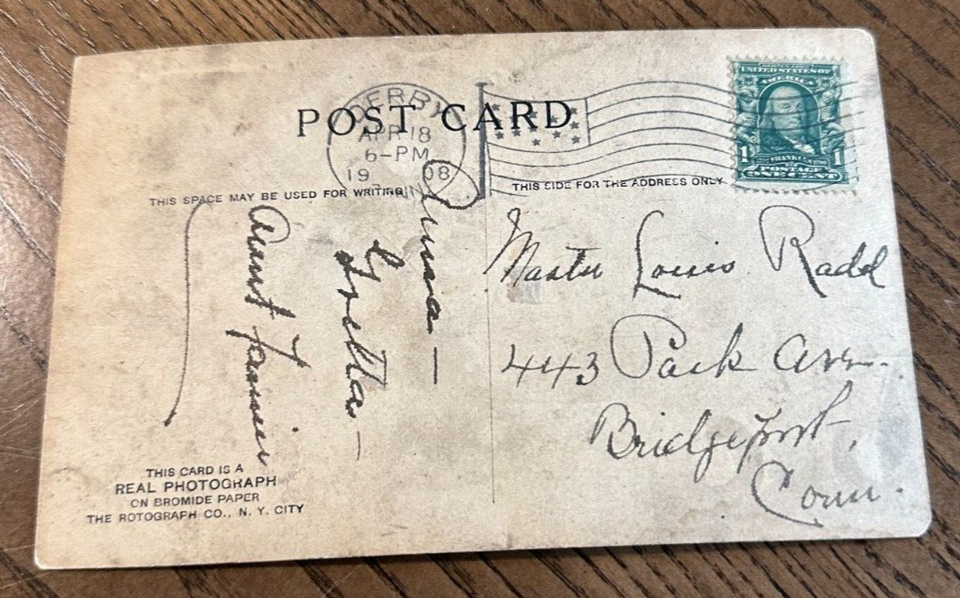 POST CARD
DERBY
APR 18
6-PM
1908
CONN
THIS SPACE MAY BE USED FOR WRITING
THIS SIDE FOR THE ADDRESS ONLY
UNITED STATES OF
AMERICA
1 FRANKLIN 1
POSTAGE
ONE CENT
Anna —
Gretta —
Aunt Fannie
Master Louis Radd
443 Park Ave.
Bridgeport,
Conn.
THIS CARD IS A
REAL PHOTOGRAPH
ON BROMIDE PAPER
THE ROTOGRAPH CO., N. Y. CITY